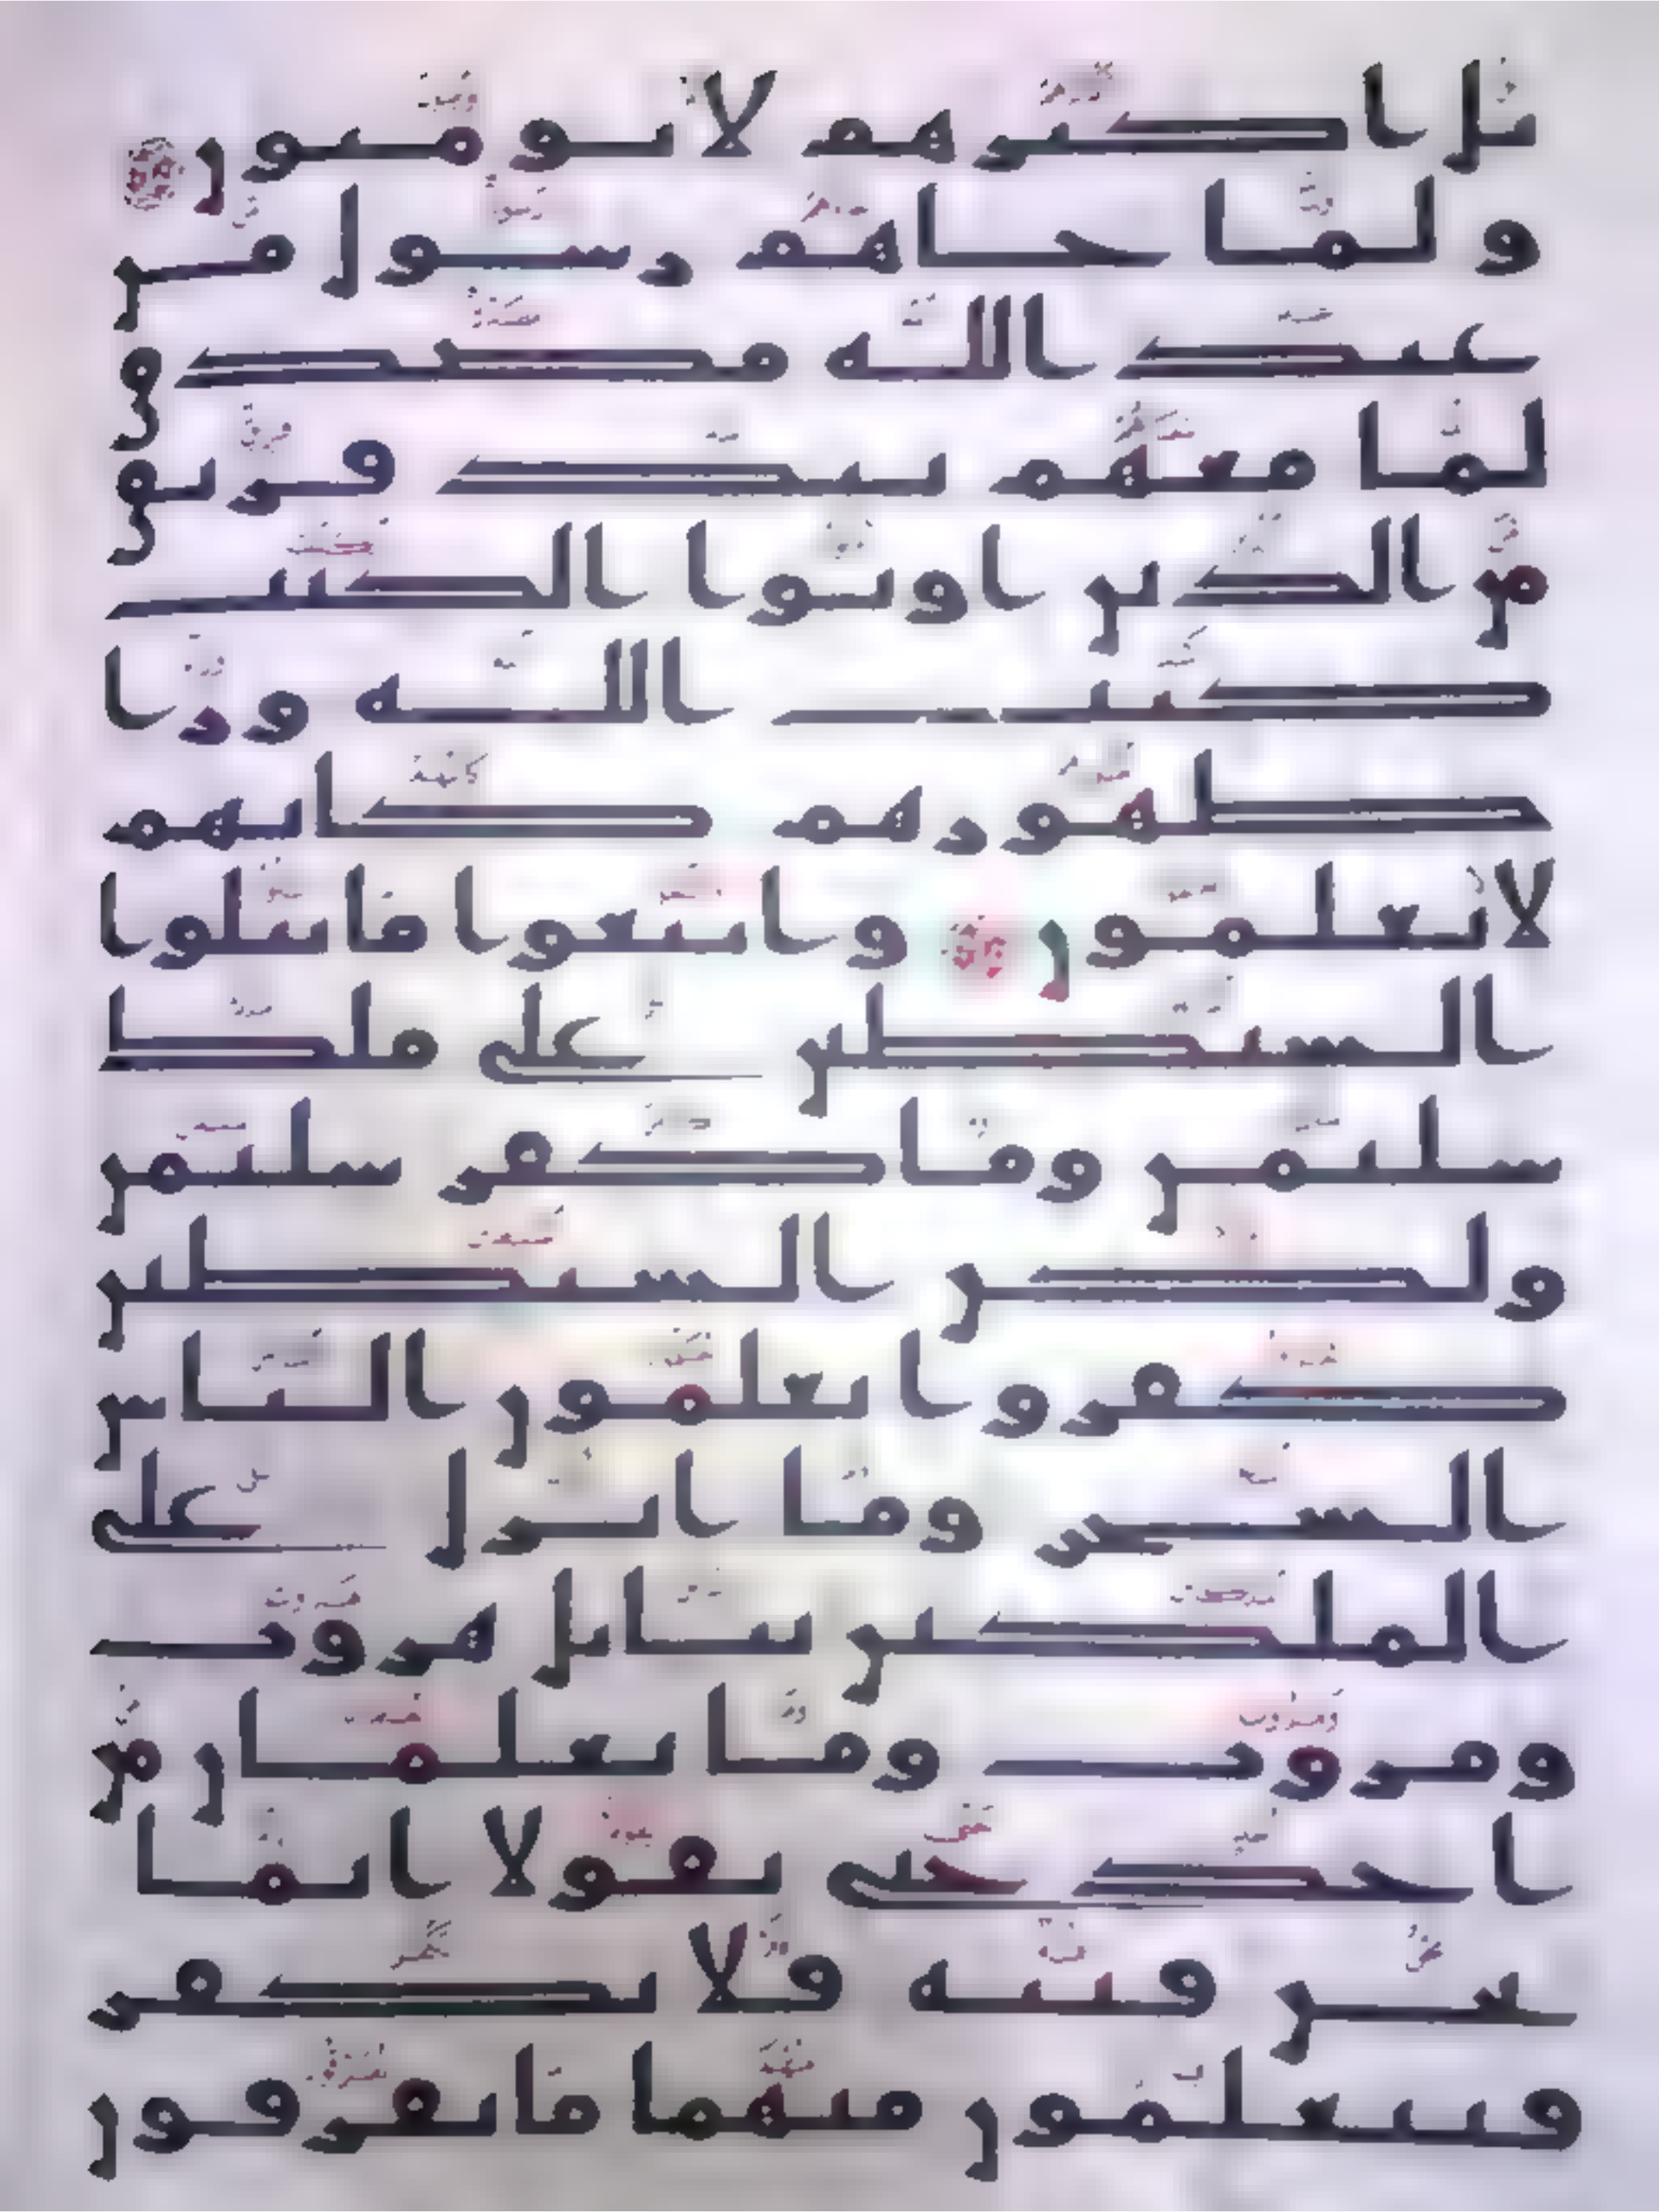 بل اكثرهم لا يومنون
ولما جاهم رسول من
عند الله مصدق
لما معهم نبذ فريق
من الذين اوتوا الكتب
كتب الله ورا
ظهورهم كانهم
لا يعلمون واتبعوا ما تتلوا
الشيطين على ملك
سليمن وما كفر سليمن
ولكن الشيطين
كفروا يعلمون الناس
السحر وما انزل على
الملكين ببابل هروت
ومروت وما يعلمان من
احد حتى يقولا انما
نحن فتنه فلا تكفر
فيتعلمون منهما ما يفرقون